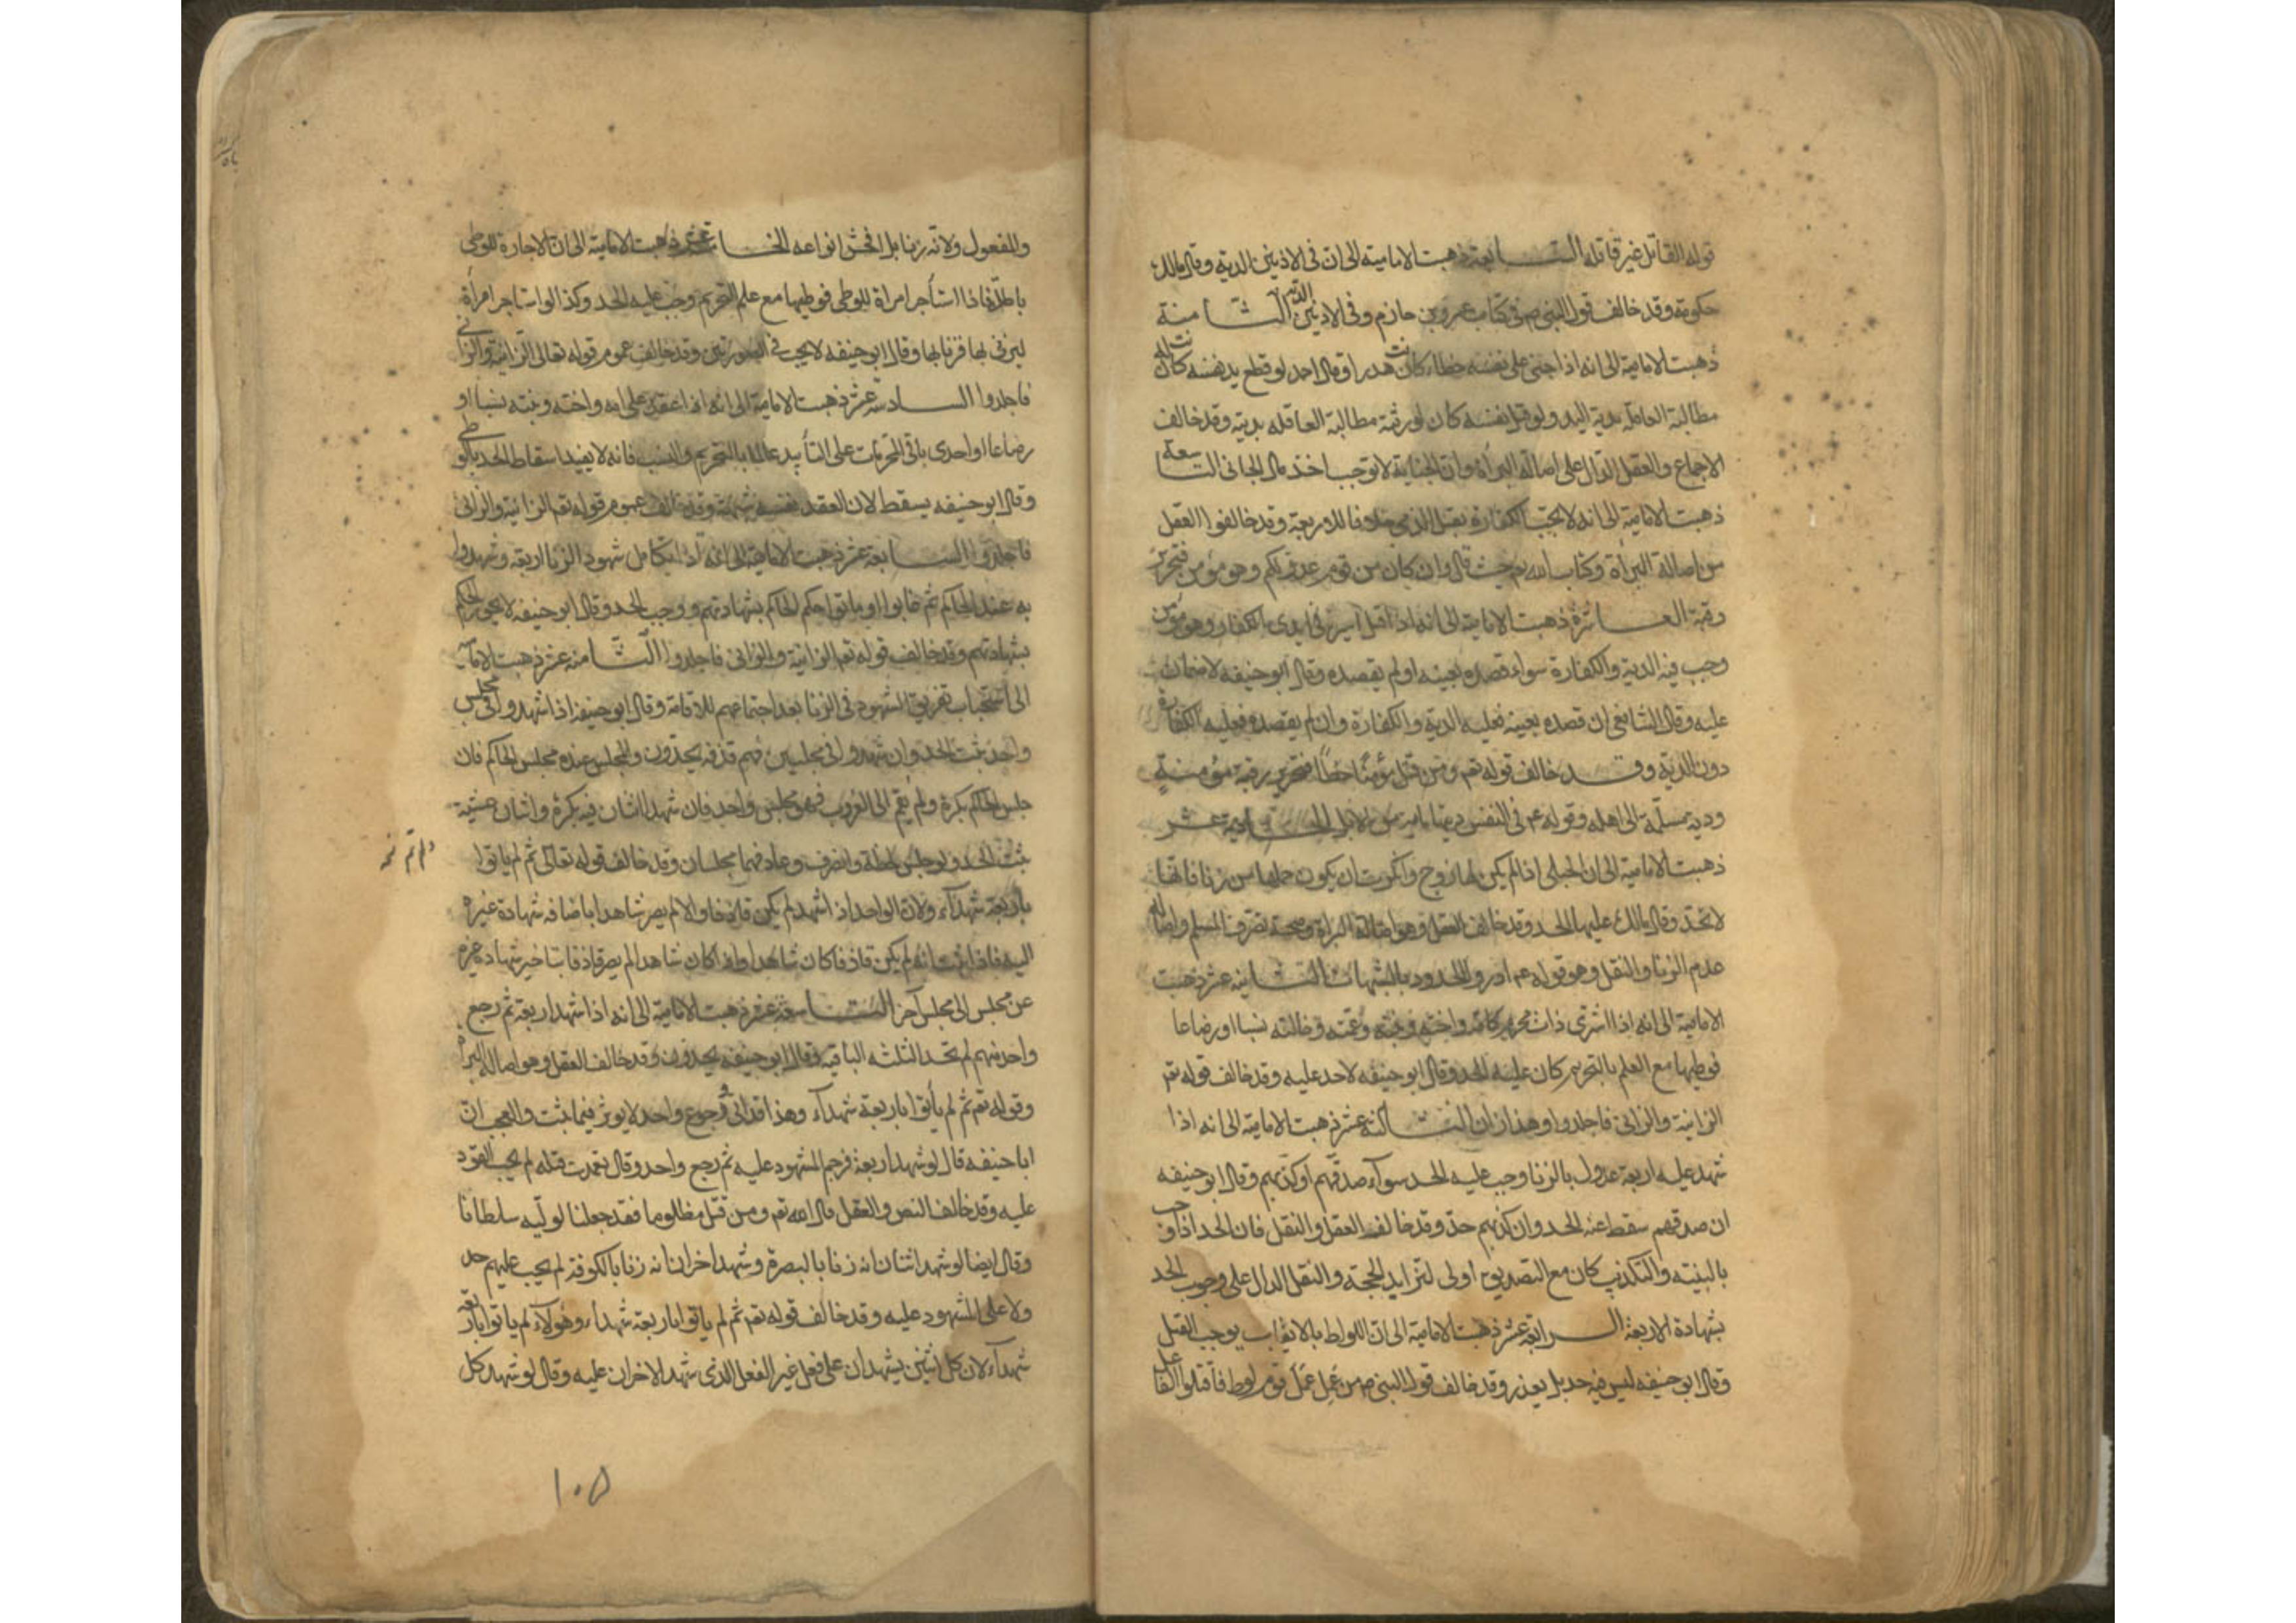 قوله القاتل غير قاتله السابعة ذهبت الامامية الى ان فى الاذنين الدية وقال مالك
حكومة وقد خالف قول النبى ص فى كتاب عمرو بن حازم وفى الاذنين الدية الثامنة
ذهبت الامامية الى انه اذا جنى على نفسه خطاء كانت هدرا وقال احمد لو قطع يد نفسه كان له
مطالبة العاقلة بدية اليد ولو قتل نفسه كان لورثته مطالبة العاقله بديته وقد خالف
الاجماع والعقل الدال على اصالة البرأة وان الجناية لا توجب اخذ مال الجانى التاسعة
ذهبت الامامية الى انه لا يجب الكفارة بقتل الذمى خلافا للاربعة وقد خالفوا العقل
من اصالة البرأة وكتاب الله تع حيث قال وان كان من قوم عدو لكم وهو مؤمن فتحرير
رقبة العاشرة ذهبت الامامية الى انه اذا قتل اسير فى ايدى الكفار وهو مؤمن
وجب فيه الدية والكفارة سواء قصده بعينه او لم يقصده وقال ابو حنيفه لا ضمان
عليه وقال الشافعى ان قصده بعينه فعليه الدية والكفارة وان لم يقصده فعليه الكفارة
دون الدية وقد خالف قوله تع ومن قتل مؤمنا خطأ فتحرير رقبة مؤمنة
ودية مسلمة الى اهله وقوله ع فى النفس مائة من الابل الحادية عشر
ذهبت الامامية الى ان الحبلى اذا لم يكن لها زوج وانكرت ان يكون حملها من زنا فانها
لا تحد وقال مالك عليها الحد وقد خالف العقل وهو اصالة البراة وصحة تصرف المسلم واصالة
عدم الزنا والنقل وهو قوله ع ادرؤا الحدود بالشبهات الثانية عشر ذهبت
الامامية الى انه اذا اشترى ذات محرم كامه واخته وبنته وعمته وخالته نسبا او رضاعا
فوطيها مع العلم بالتحريم كان عليه الحد وقال ابو حنيفه لا حد عليه وقد خالف قوله تع
الزانية والزانى فاجلدوا وهذا زان الثالثة عشر ذهبت الامامية الى انه اذا
شهد عليه اربعة عدول بالزنا وجب عليه الحد سوآء صدقهم او كذبهم وقال ابو حنيفه
ان صدقهم سقط عنه الحد وان كذبهم حد وقد خالف العقل والنقل فان الحد اذا وجب
بالبينة والتكذيب كان مع التصديق اولى لتزايد الحجة والنقل الدال على وجوب الحد
بشهادة الاربعة الرابعة عشر ذهبت الامامية الى ان اللواط بالايقاب يوجب القتل
وقال ابو حنيفه ليس فيه حد بل يعذر وقد خالف قول النبى ص من عمل عمل قوم لوط فاقتلوا الفاعل
والمفعول ولانه زنا بل افحش انواعه الخامسة عشر ذهبت الامامية الى ان الاجارة للوطى
باطلة فاذا استأجر امراة للوطى فوطيها مع علم التحريم وجب عليه الحد وكذا لو استاجر امرأة
ليزنى بها فزنا بها وقال ابو حنيفه لا يجب فى الصورتين وقد خالف عموم قوله تعالى الزانية والزانى
فاجلدوا السادسة عشر ذهبت الامامية الى انه اذا عقد على امه واخته وبنته نسبا او
رضاعا او احدى باقى المحرمات على التأبيد عالما بالتحريم والنسب فانه لا يفيد اسقاط الحد بالوطى
وقال ابو حنيفه يسقط لان العقد نفسه شبهة وقد خالف عموم قوله تع الزانية والزانى
فاجلدوا السابعة عشر ذهبت الامامية الى انه اذا تكامل شهود الزنا اربعة وشهدوا
به عند الحاكم ثم غابوا او ماتوا حكم الحاكم بشهادتهم ووجب الحد وقال ابو حنيفه لا يجوز الحكم
بشهادتهم وقد خالف قوله تع الزانية والزانى فاجلدوا الثامنة عشر ذهبت الامامية
الى استحباب تفريق الشهود فى الزنا بعد اجتماعهم للاقامة وقال ابو حنيفة اذا شهدوا فى مجلس
واحد ثبت الحد وان شهدوا فى مجلسين فهم قذفه يحدون والمجلس عنده مجلس الحاكم فان
جلس الحاكم بكرة ولم يقم الى الغروب فهو مجلس واحد فان شهد اثنان فيه بكرة واثنان عشية
ثبت الحد ولو جلس لحظة وانصرف وعاد فهما مجلسان وقد خالف قوله تعالى ثم لم ياتوا
باربعة شهدآء ولان الواحد اذا شهد لم يكن قاذفا والا لم يصر شاهدا باضافه شهادة غيره
اليه فاذا ثبت انه لم يكن قاذفا كان شاهدا واذا كان شاهدا لم يصر قاذفا بتاخير شهادة غيره
عن مجلس الى مجلس آخر التاسعة عشر ذهبت الامامية الى انه اذا شهد اربعة ثم رجع
واحد منهم لم تحد الثلثه الباقية وقال ابو حنيفه يحدون وقد خالف العقل وهو اصالة البراة
وقوله تع ثم لم يأتوا باربعة شهدآء وهذا قد اتى ورجوع واحد لا يوثر فيما ثبت والعجب ان
ابا حنيفه قال لو شهد اربعة فرجم المشهود عليه ثم رجع واحد وقال تعمدت قتله لم يجب القود
عليه وقد خالف النص والعقل قال الله تع ومن قتل مظلوما فقد جعلنا لوليه سلطانا
وقال ايضا لو شهد اثنان انه زنا بالبصرة وشهد اخران انه زنا بالكوفة لم يجب عليهم حد
ولا على المشهود عليه وقد خالف قوله تع ثم لم ياتوا باربعة شهدآء وهؤلآء لم ياتوا باربعة
شهدآء لان كل اثنين يشهدان على فعل غير الفعل الذى شهد الاخران عليه وقال لو شهد كل
١٠٥